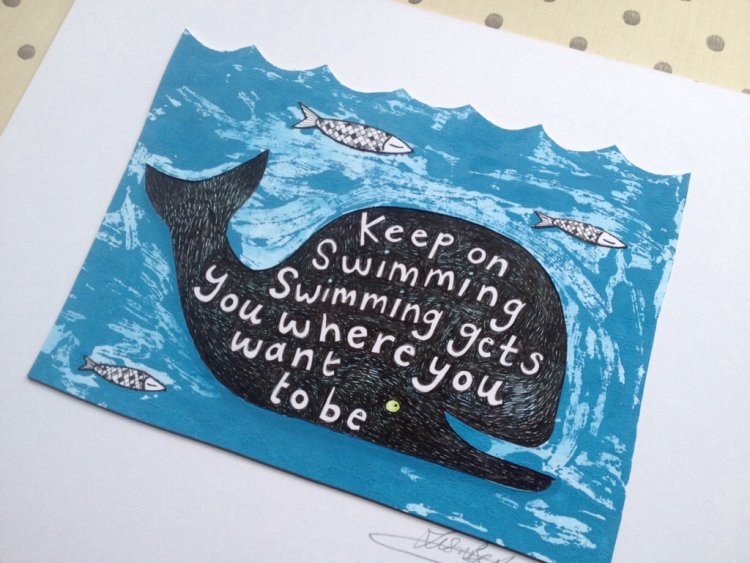 Keep on
Swimming
Swimming gets
You where you
want
to be